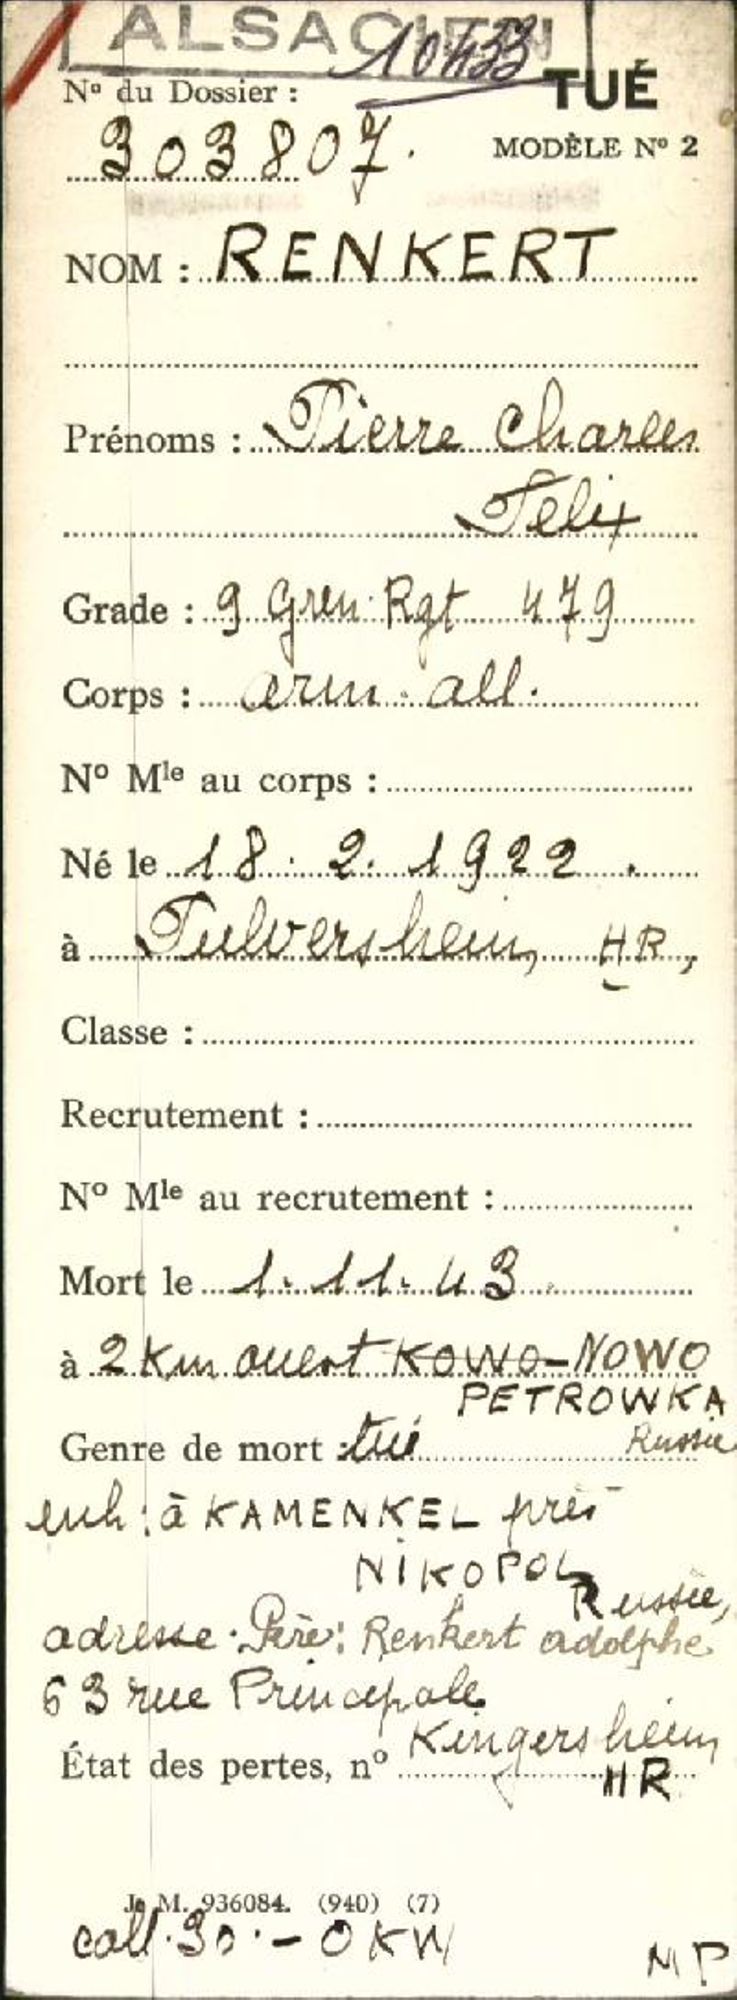 ALSACIEN
10433
N° du Dossier : TUÉ
303807. MODÈLE N° 2
NOM : RENKERT
Prénoms : Pierre Charles
Felix
Grade : 9 Gren. Rgt 479
Corps : arm. all.
N° Mle au corps :
Né le 18. 2. 1922.
à Pulversheim, HR,
Classe :
Recrutement :
N° Mle au recrutement :
Mort le 1. 11. 43.
à 2 Km ouest KOWO-NOWO
PETROWKA
Genre de mort : tué Russie
inh: à KAMENKEL près
NIKOPOL
Russie,
adresse. Père: Renkert adolphe
63 rue Principale
Kingersheim
État des pertes, n° HR
J. M. 936084. (940) (7)
call. 30. - OKW
MP